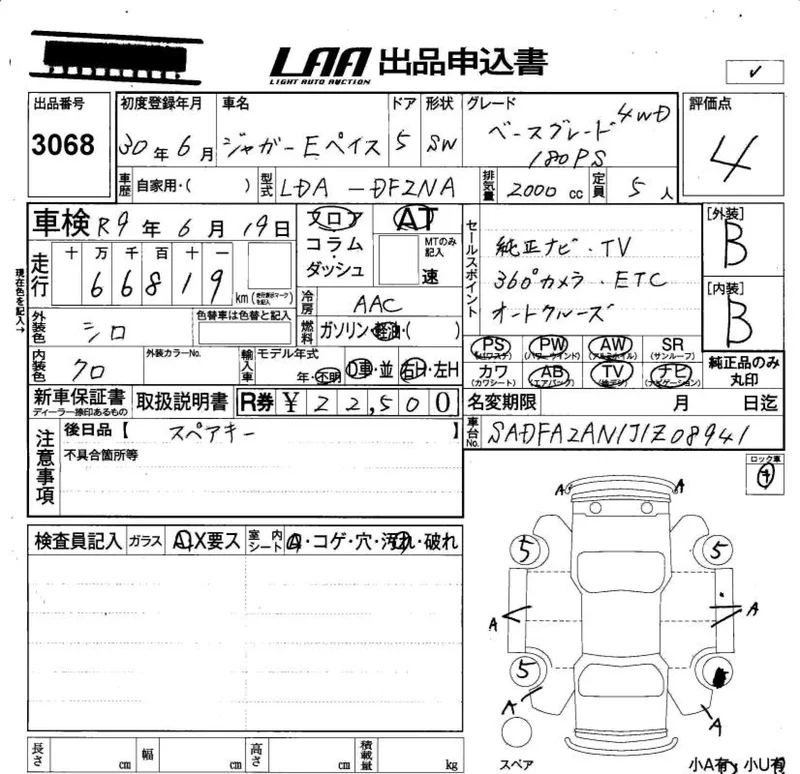 LAA 出品申込書
LIGHT AUTO AUCTION
✓
出品番号 初度登録年月 車名 ドア 形状 グレード 評価点
3068 30年6月 ジャガーEペイス 5 SW ベースグレード 4WD 180PS 4
車歴 自家用・( ) 型式 LDA-DF2NA 排気量 2000 cc 定員 5人
車検 R9年6月19日 フロア AT セールスポイント [外装]
コラム・ MTのみ記入 純正ナビ・TV B
走行 十万千百十一 ダッシュ 速 360°カメラ・ETC
66819 km (走行表示マークを記入) 冷房 AAC オートクルーズ [内装]
現在色を記入→ B
外装色 シロ 色替車は色替と記入 燃料 ガソリン・軽油・( )
PS (パワステ) PW (パワーウインド) AW (アルミホイル) SR (サンルーフ)
内装色 クロ 外装カラーNo. 輸入車 モデル年式 年・不明 D車・並 右H・左H
カワ (カワシート) AB (エアバック) TV (地デジ) ナビ (ナビゲーション) 純正品のみ丸印
新車保証書 取扱説明書 R券 ¥22,500 名変期限 月 日迄
ディーラー捺印あるもの
注意事項 後日品【 スペアキー 】 車台No. SADFA2AN1J1Z08941
不具合箇所等
ロック車
キ
検査員記入 ガラス A・X要ス 室内シート A・コゲ・穴・汚れ・破れ
A A
5 5
A A
5
A A
スペア
小A有 小U有
長さ cm 幅 cm 高さ cm 積載量 kg